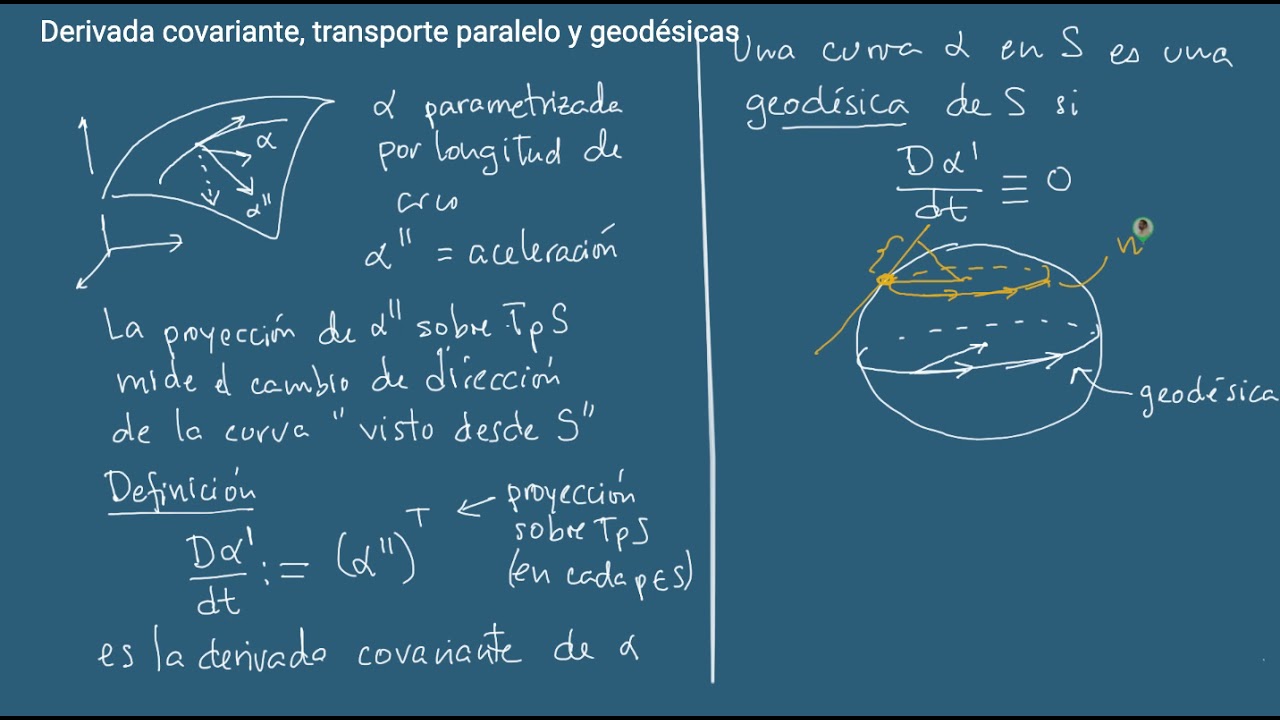 Derivada covariante, transporte paralelo y geodésicas
α
α''
α parametrizada
por longitud de
arco
α'' = aceleración
La proyección de α'' sobre TpS
mide el cambio de dirección
de la curva "visto desde S"
Definición
Dα'/dt := (α'')^T ← proyección
sobre TpS
(en cada p∈S)
es la derivada covariante de α
Una curva α en S es una
geodésica de S si
Dα'/dt ≡ 0
n
geodésica